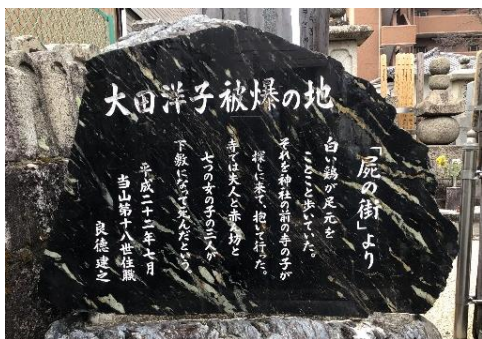 大田洋子被爆の地
「屍の街」より
白い鶏が足元を
ことこと歩いていた。
それを神社の前の寺の子が
探しに来て、抱いて行った。
寺では夫人と赤ん坊と
七つの女の子の三人が
下敷になって死んだという。
平成二十二年七月
当山第十八世住職
良徳建之